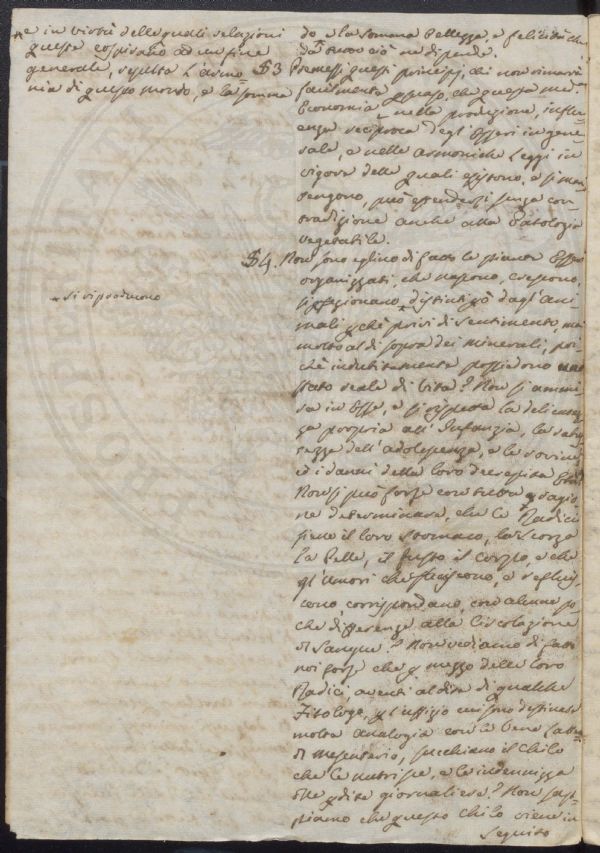 e in virtù delle quali relazioni
queste cospirano ad un fine
generale, risulta l'armo-
nia di questo mondo, e la somma
+ si riproducono
do e la somma bellezza, e felicità che
da tutto ciò ne dipende.
§3 Premessi questi principj, chi non rimarrà
facilmente persuaso, che questa med.ª
Economia nella produzione, influ-
enza reciproca degl'Esseri in gene-
rale, e nelle armoniche Leggi in
vigore delle quali esistono, e si man-
tengono, può estendersi senza con-
tradizione anche alla Patologia
vegetabile.
§4. Non sono eglino di fatto le piante Esseri
organizzati, che nascono, crescono,
si propagano, distinti già dagl'Ani-
mali perchè privi di sentimento, ma
molto al di sopra dei minerali, poi-
chè indubitatamente possiedono uno
stato reale di vita? Non si ammi-
ra in Esse, e si rispetta la delicatez-
za propria all'Infanzia, la robu-
stezza dell'adolescenza, e le rovine,
ed i danni della loro decrepita Età?
Non si può forse con tutta ragio-
ne determinare, che le Radici
sieno il loro stomaco, la Scorza
la Pelle, il fusto il Corpo, e che
gl'Umori che fluiscono, e reflui-
scono, corrispondano, con alcune po-
che differenze alla Circolazione
di Sangue? Non vediamo di fatti
noi forse che per mezzo delle loro
Radici, aventi al dire di qualche
Fitologo, per l'uffizio cui sono destinate
molta analogia con le Vene lattee
di Mesenterio, succhiano il Chilo
che le nutrisce, e le indennizza
delle perdite giornaliere? Non sap-
piamo che questo chilo viene in
seguito